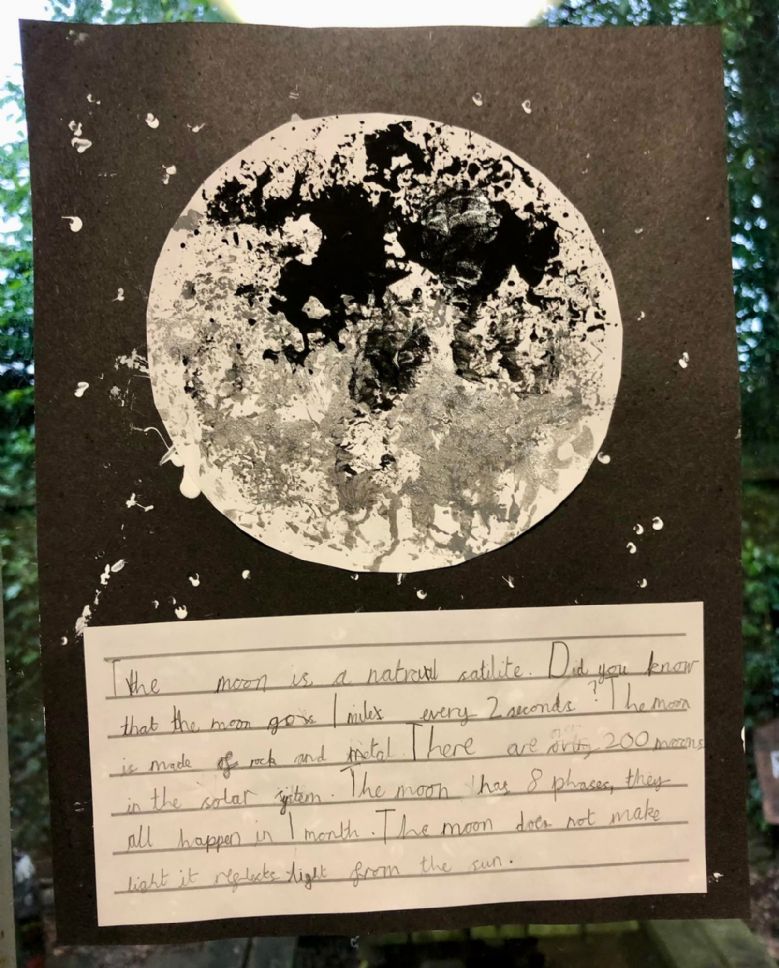 The moon is a natraul satilite. Did you know
that the moon gos 1 miles every 2 seconds? The moon
is made of rock and metal. There are 200 moons
in the solar system. The moon has 8 phases, they
all happen in 1 month. The moon does not make
light it reflects light from the sun.